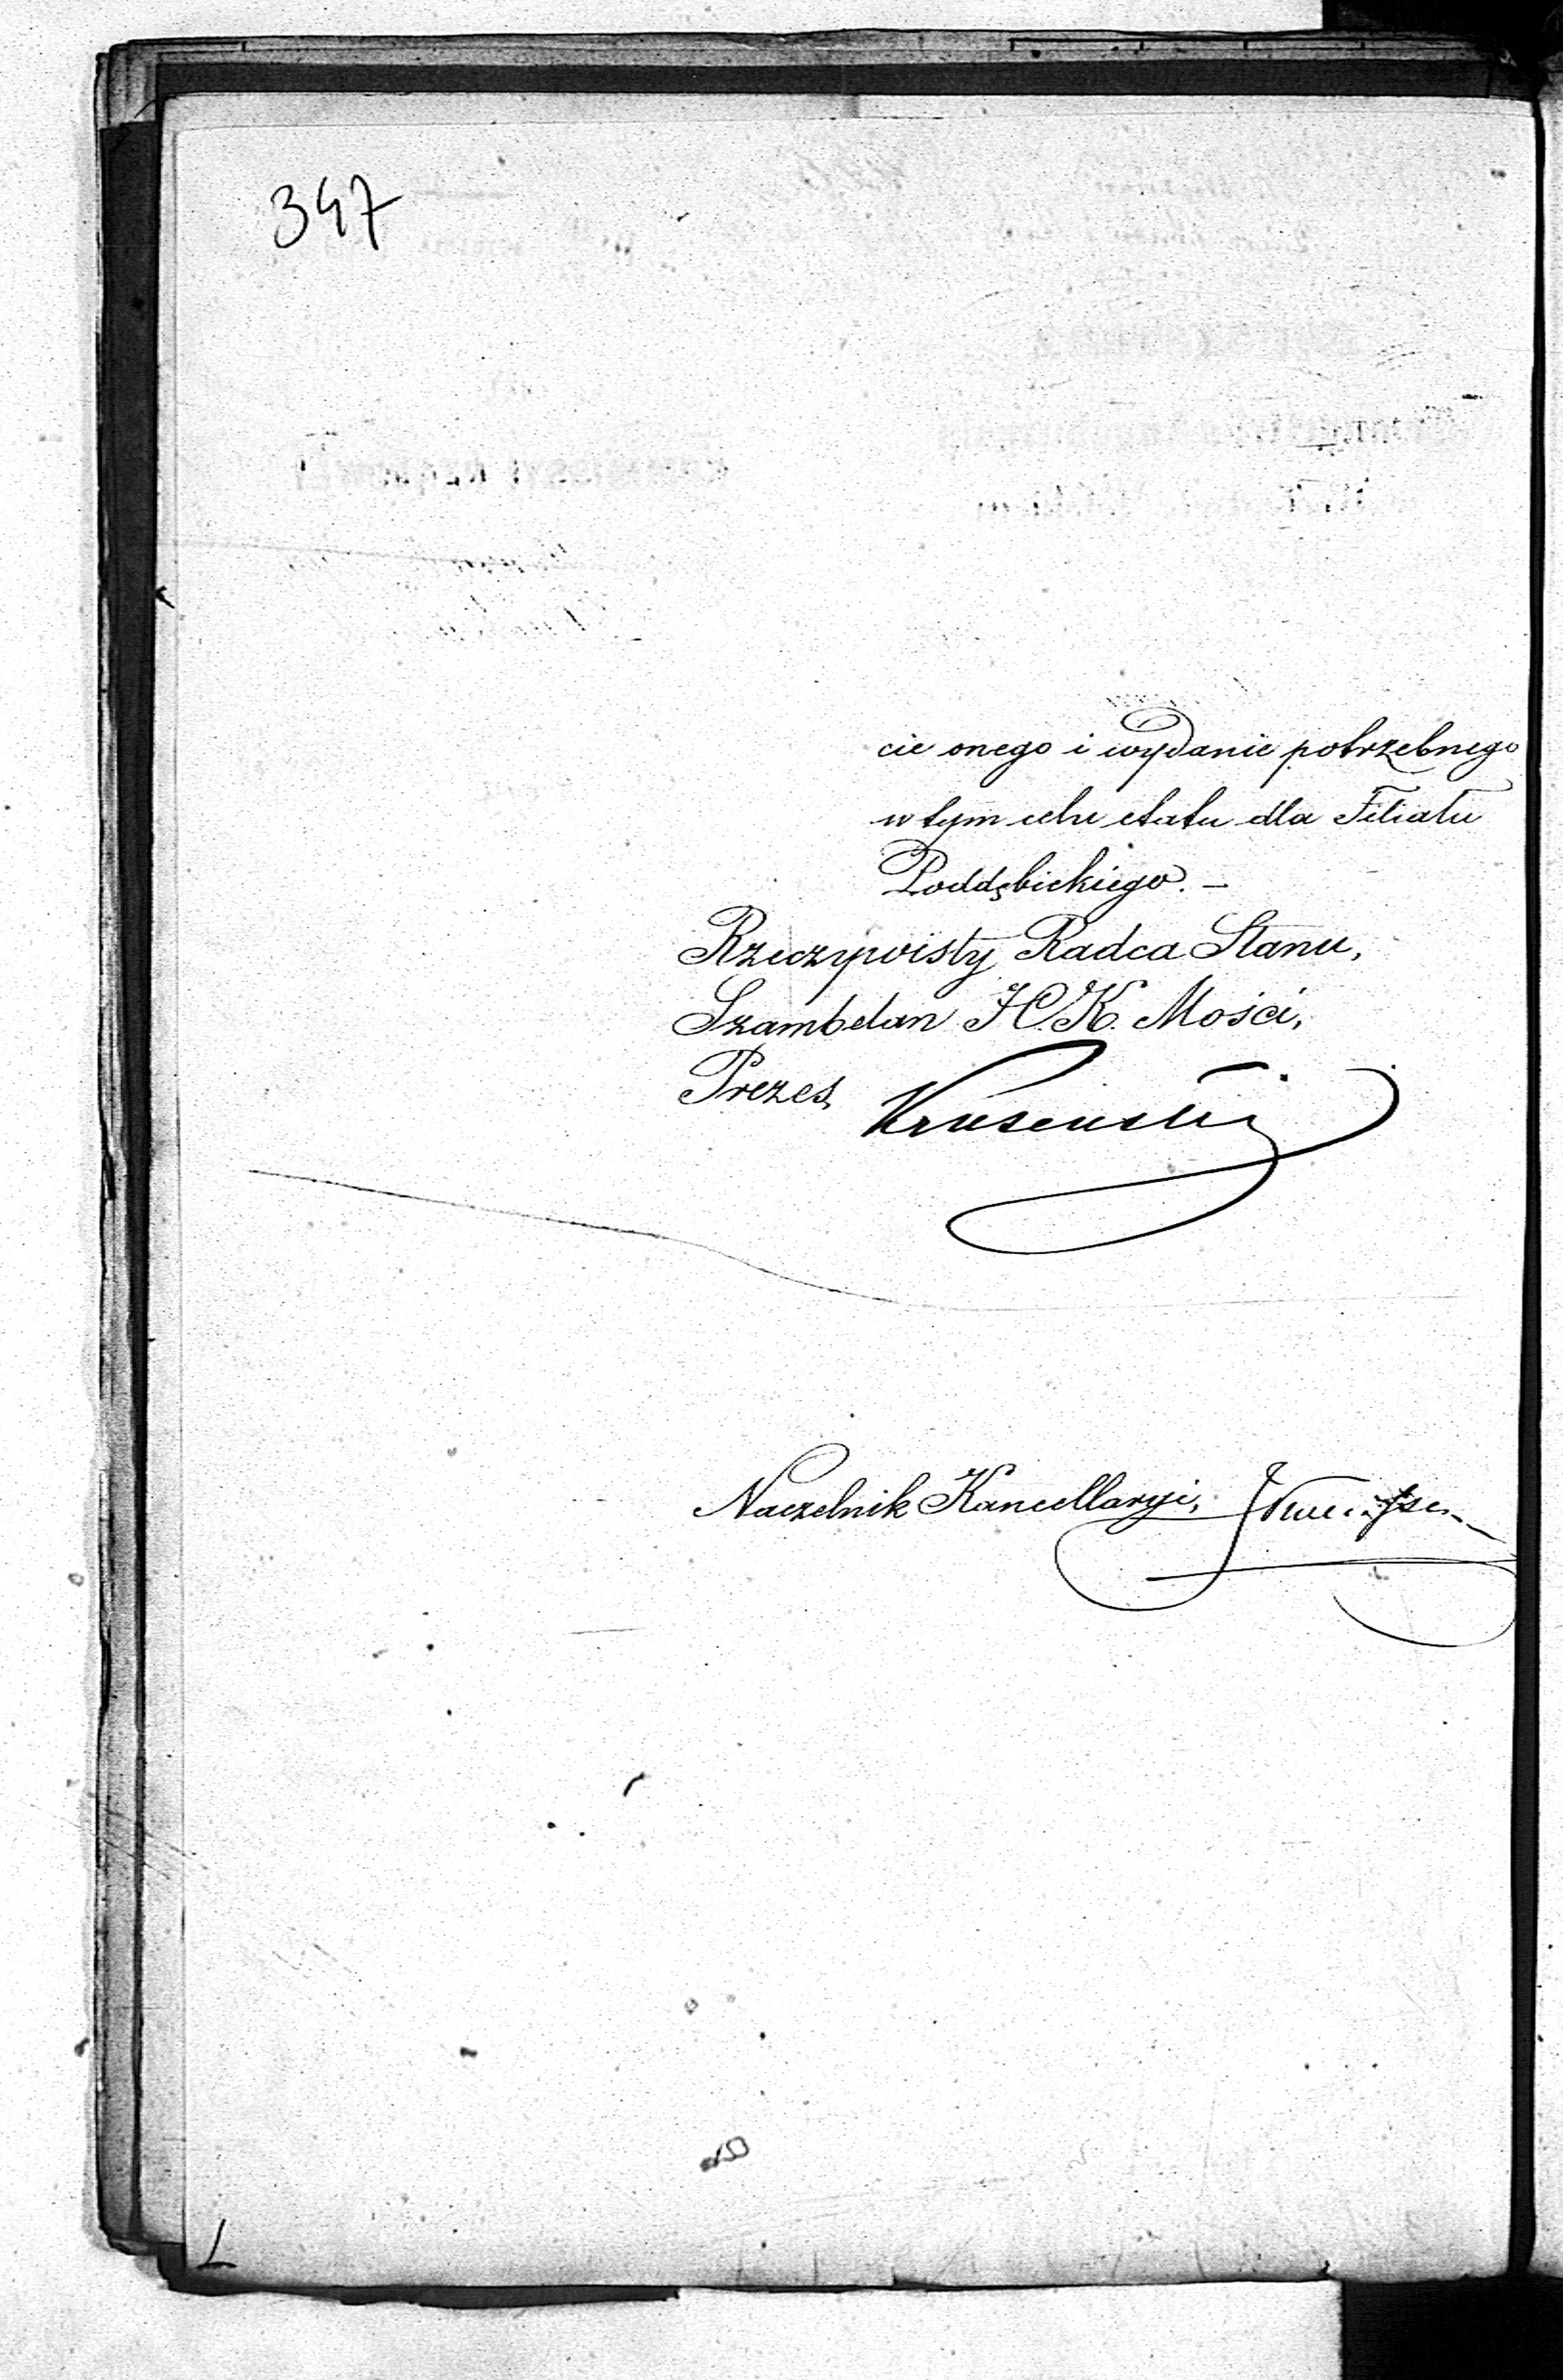 347
cie onego i wydanie potrzebnego
w tym celu etatu dla Filiału
Poddębickiego. —
Rzeczywisty Radca Stanu,
Szambelan J.C.K. Mości,
Prezes,
Naczelnik Kancellaryi,